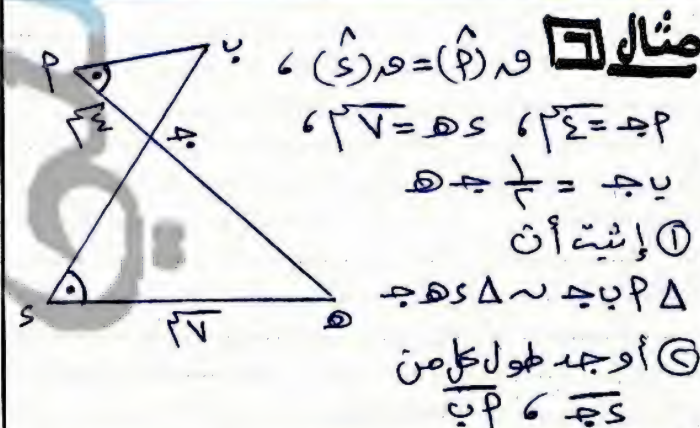 مثال ٦ ق(أ^) = ق(د^) ،
أجـ = ٤سم ، دهـ = ٧سم ،
بجـ = ١/٢ جـهـ
① إثبت أن
Δ أبجـ ~ Δ دهـجـ
② أوجد طول كل من
دجـ ، أب
ب
أ
٤سم
جـ
د
هـ
٧سم